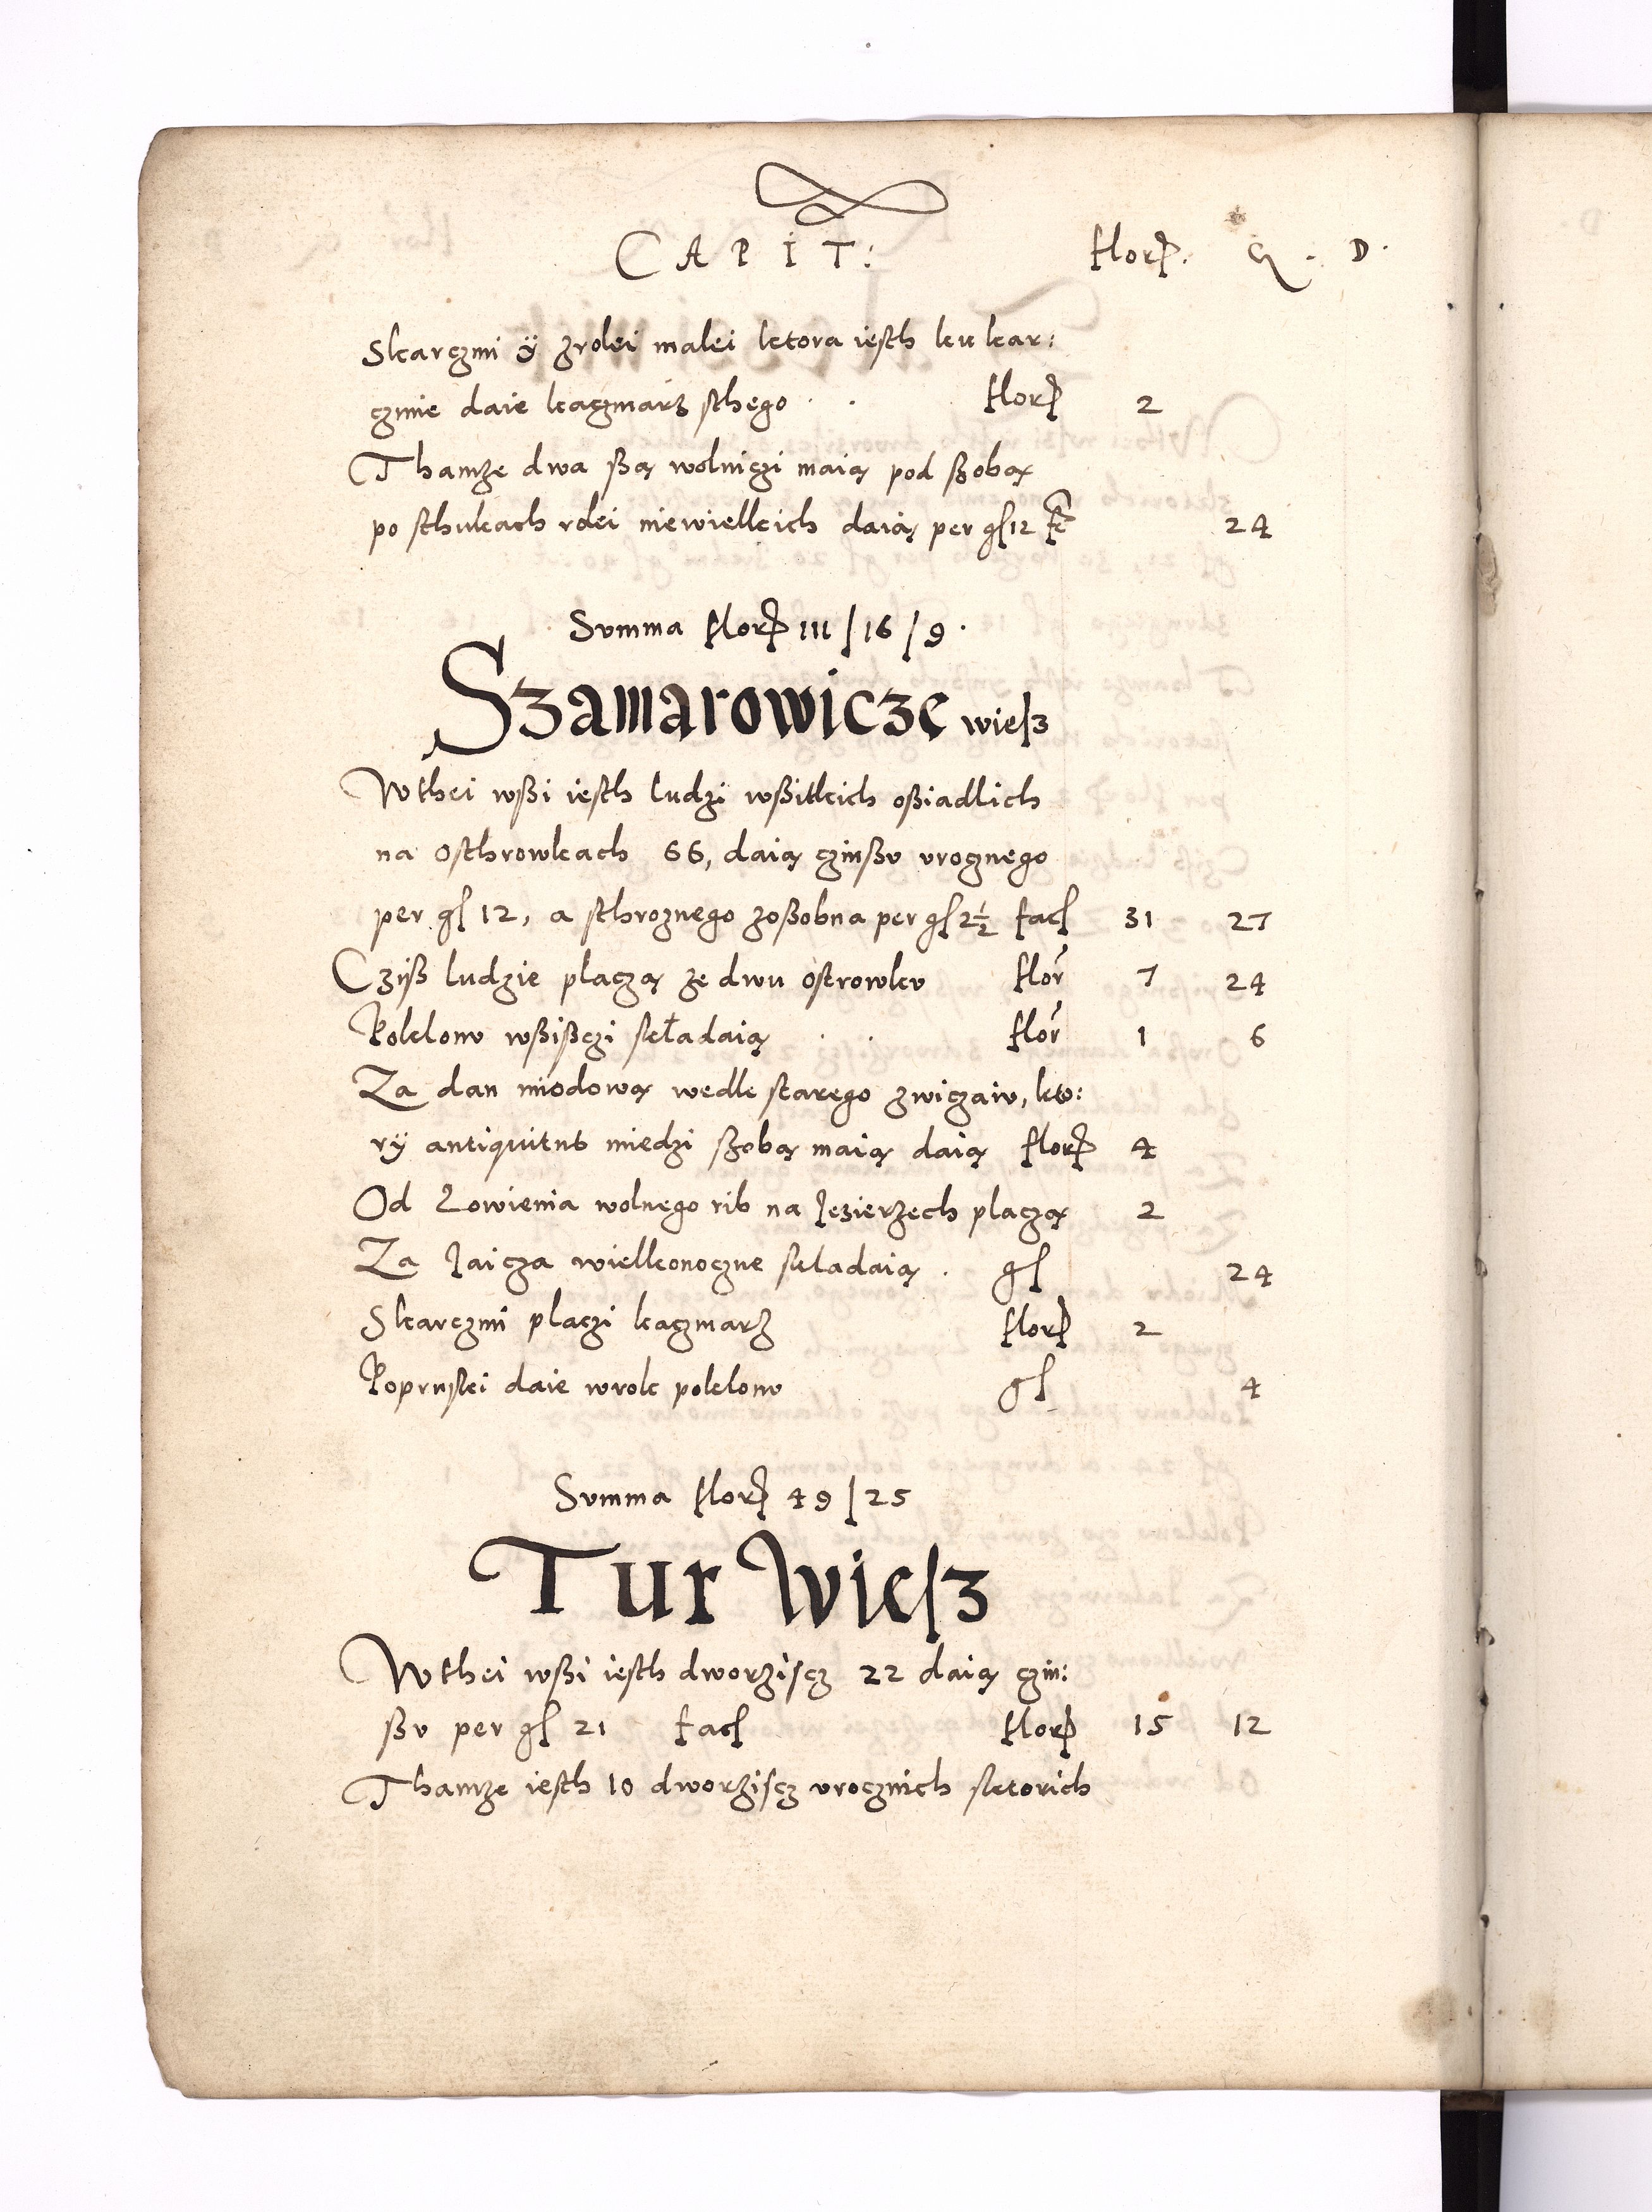 CAPIT: Flor. G. D.
Skarczmi ÿ zrolei malei ktora iesth ku kar:
czmie daie kaczmarz sthego . . Flor 2
Thamze dwa ßą wolniczi maią pod ßobą
po sthukach rolei niewielkich daią per gſ 12 fc 24
Summa Flor 111/16/9.
Szamarowicze wiesz
Wthei wßi iesth ludzi wßitkich oßiadlich
na Osthrowkach 66, daią czinßu urocznego
per gſ 12, a sthroznego zoßobna per gſ 2½ facſ 31 27
Cziß ludzie placzą ze dwu ostrowku flor 7 24
Poklonu wßißczi składaią . . flor 1 6
Za dan miodową wedle starego zwiczaiu, kto:
rÿ antiquitus miedzi ßobą maią daią Flor 4
Od Łowienia wolnego rib na Jezierzech placzą 2
Za Jaicza wielkonoczne skladaią . gſ 24
Skarczmi placzi kaczmarz Flor 2
Koprußki daie wrok poklonu gſ 4
Summa Flor 49/25
Tur Wiesz
Wthei wßi iesth dworziscz 22 daią czin:
ßu per gſ 21 facſ Flor 15 12
Thamze iesth 10 dworziscz urocznich sktorich